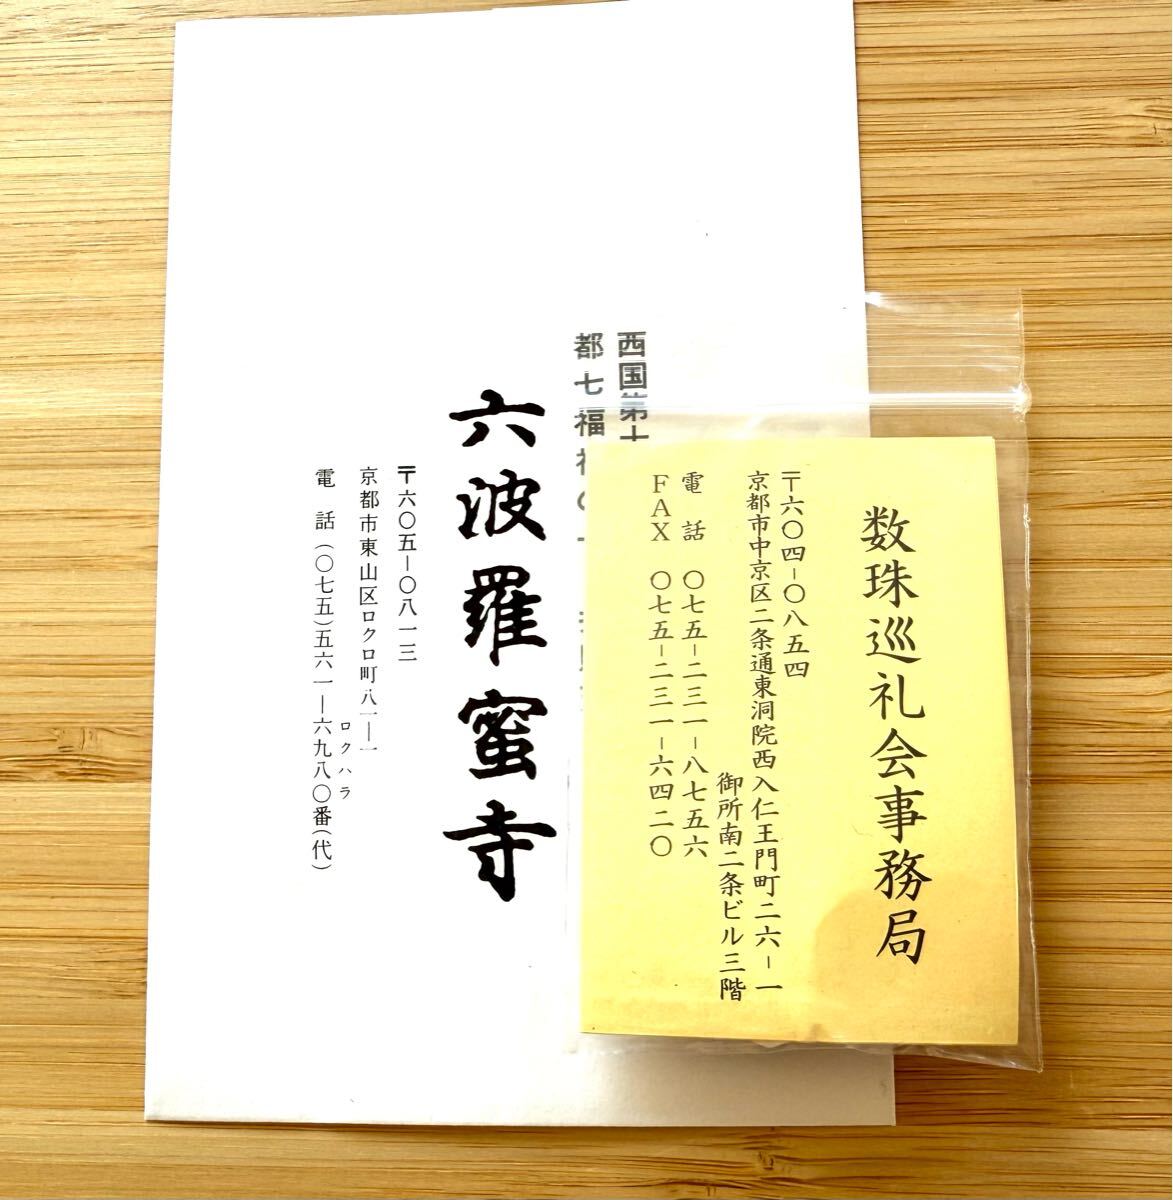 西国第十
都七福神の一
六波羅蜜寺
〒六〇五―〇八一三
京都市東山区ロクロ町八一―一
ロクハラ
電話(〇七五)五六一―六九八〇番(代)
数珠巡礼会事務局
〒六〇四-〇八五四
京都市中京区二条通東洞院西入仁王門町二六-一
御所南二条ビル三階
電話 〇七五-二三一-八七五六
FAX 〇七五-二三一-六四二〇